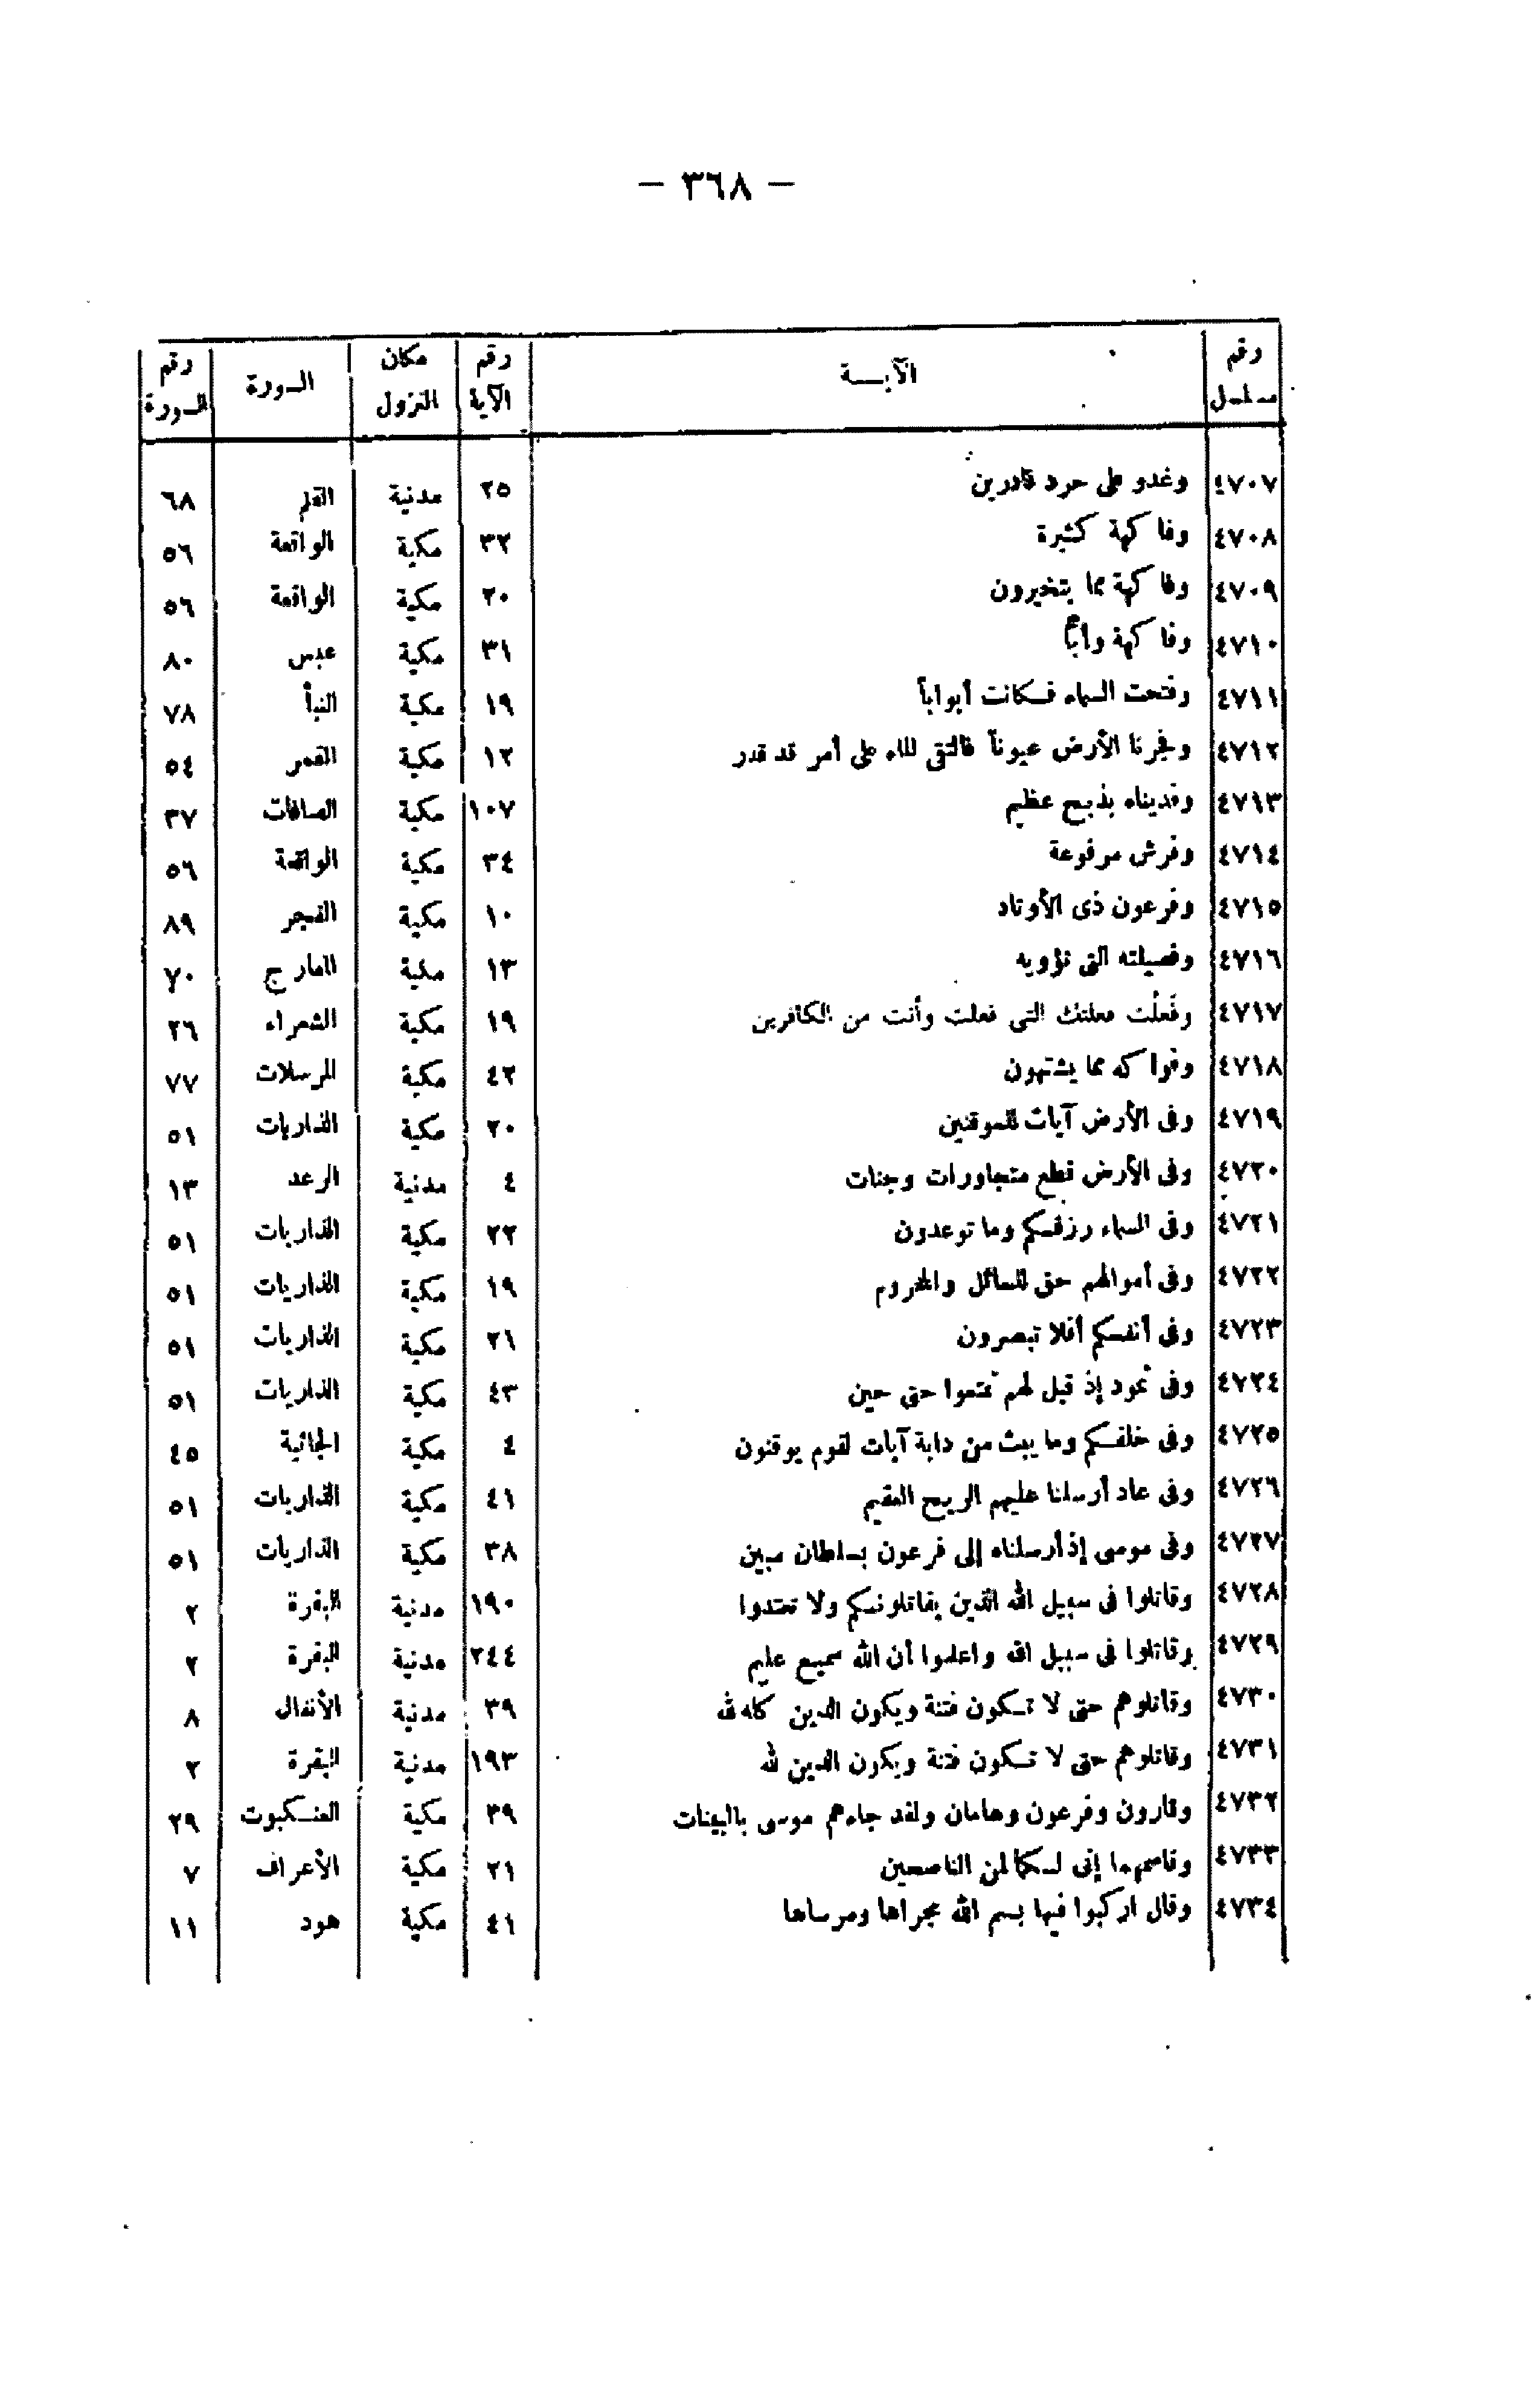 — ٣٦٨ —
رقم مسلسل | الآيـــة | رقم الآية | مكان النزول | السورة | رقم السورة
٤٧٠٧ | وغدو على حرد قادرين | ٢٥ | مدنية | القلم | ٦٨
٤٧٠٨ | وفاكهة كثيرة | ٣٢ | مكية | الواقعة | ٥٦
٤٧٠٩ | وفاكهة مما يتخيرون | ٢٠ | مكية | الواقعة | ٥٦
٤٧١٠ | وفاكهة وأباً | ٣١ | مكية | عبس | ٨٠
٤٧١١ | وفتحت السماء فكانت أبواباً | ١٩ | مكية | النبأ | ٧٨
٤٧١٢ | وفجرنا الأرض عيوناً فالتقى الماء على أمر قد قدر | ١٢ | مكية | القمر | ٥٤
٤٧١٣ | وفديناه بذبح عظيم | ١٠٧ | مكية | الصافات | ٣٧
٤٧١٤ | وفرش مرفوعة | ٣٤ | مكية | الواقعة | ٥٦
٤٧١٥ | وفرعون ذى الأوتاد | ١٠ | مكية | الفجر | ٨٩
٤٧١٦ | وفصيلته التى تؤويه | ١٣ | مكية | المعارج | ٧٠
٤٧١٧ | وفعلت فعلتك التى فعلت وأنت من الكافرين | ١٩ | مكية | الشعراء | ٢٦
٤٧١٨ | وفواكه مما يشتهون | ٤٢ | مكية | المرسلات | ٧٧
٤٧١٩ | وفى الأرض آيات للموقنين | ٢٠ | مكية | الذاريات | ٥١
٤٧٢٠ | وفى الأرض قطع متجاورات وجنات | ٤ | مدنية | الرعد | ١٣
٤٧٢١ | وفى السماء رزقكم وما توعدون | ٢٢ | مكية | الذاريات | ٥١
٤٧٢٢ | وفى أموالهم حق للسائل والمحروم | ١٩ | مكية | الذاريات | ٥١
٤٧٢٣ | وفى أنفسكم أفلا تبصرون | ٢١ | مكية | الذاريات | ٥١
٤٧٢٤ | وفى ثمود إذ قيل لهم تمتعوا حتى حين | ٤٣ | مكية | الذاريات | ٥١
٤٧٢٥ | وفى خلقكم وما يبث من دابة آيات لقوم يوقنون | ٤ | مكية | الجاثية | ٤٥
٤٧٢٦ | وفى عاد أرسلنا عليهم الريح العقيم | ٤١ | مكية | الذاريات | ٥١
٤٧٢٧ | وفى موسى إذ أرسلناه إلى فرعون بسلطان مبين | ٣٨ | مكية | الذاريات | ٥١
٤٧٢٨ | وقاتلوا فى سبيل الله الذين يقاتلونكم ولا تعتدوا | ١٩٠ | مدنية | البقرة | ٢
٤٧٢٩ | وقاتلوا فى سبيل الله واعلموا أن الله سميع عليم | ٢٤٤ | مدنية | البقرة | ٢
٤٧٣٠ | وقاتلوهم حتى لا تكون فتنة ويكون الدين كله لله | ٣٩ | مدنية | الأنفال | ٨
٤٧٣١ | وقاتلوهم حتى لا تكون فتنة ويكون الدين لله | ١٩٣ | مدنية | البقرة | ٢
٤٧٣٢ | وقارون وفرعون وهامان ولقد جاءهم موسى بالبينات | ٣٩ | مكية | العنكبوت | ٢٩
٤٧٣٣ | وقاسمهما إنى لكما لمن الناصحين | ٢١ | مكية | الأعراف | ٧
٤٧٣٤ | وقال اركبوا فيها بسم الله مجراها ومرساها | ٤١ | مكية | هود | ١١